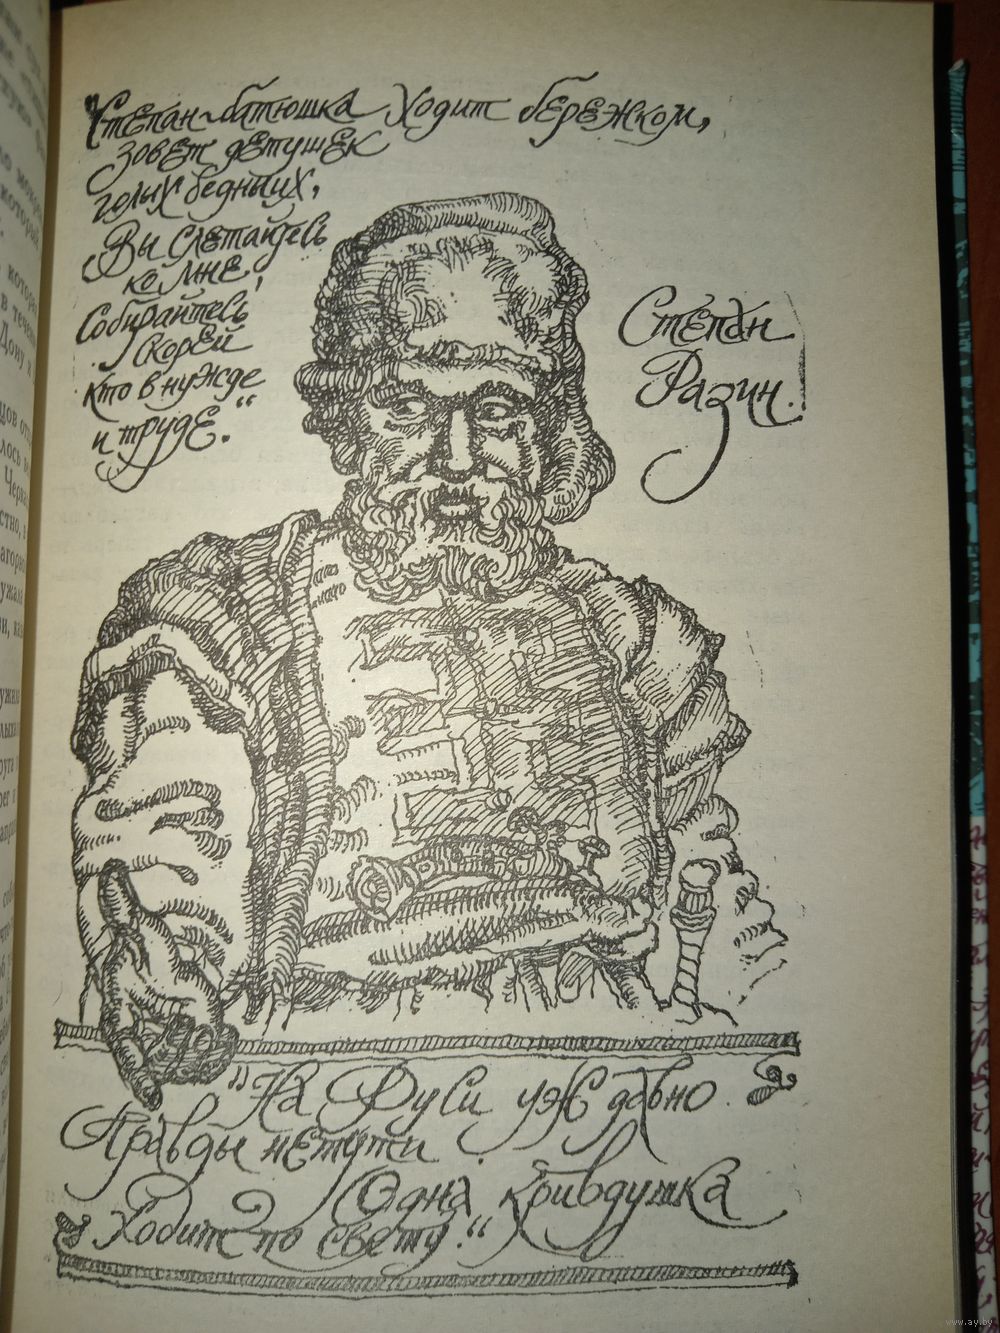 "Степан-батюшка ходит бережком,
зовет детушек
голых бедных,
"Вы слетайтесь
ко мне,
Собирайтесь
скорей
кто в нужде
и труде."
Степан
Разин.
"На Руси уж давно
Правды нетути
Одна кривдушка
Ходит по свету."
www.ay.by